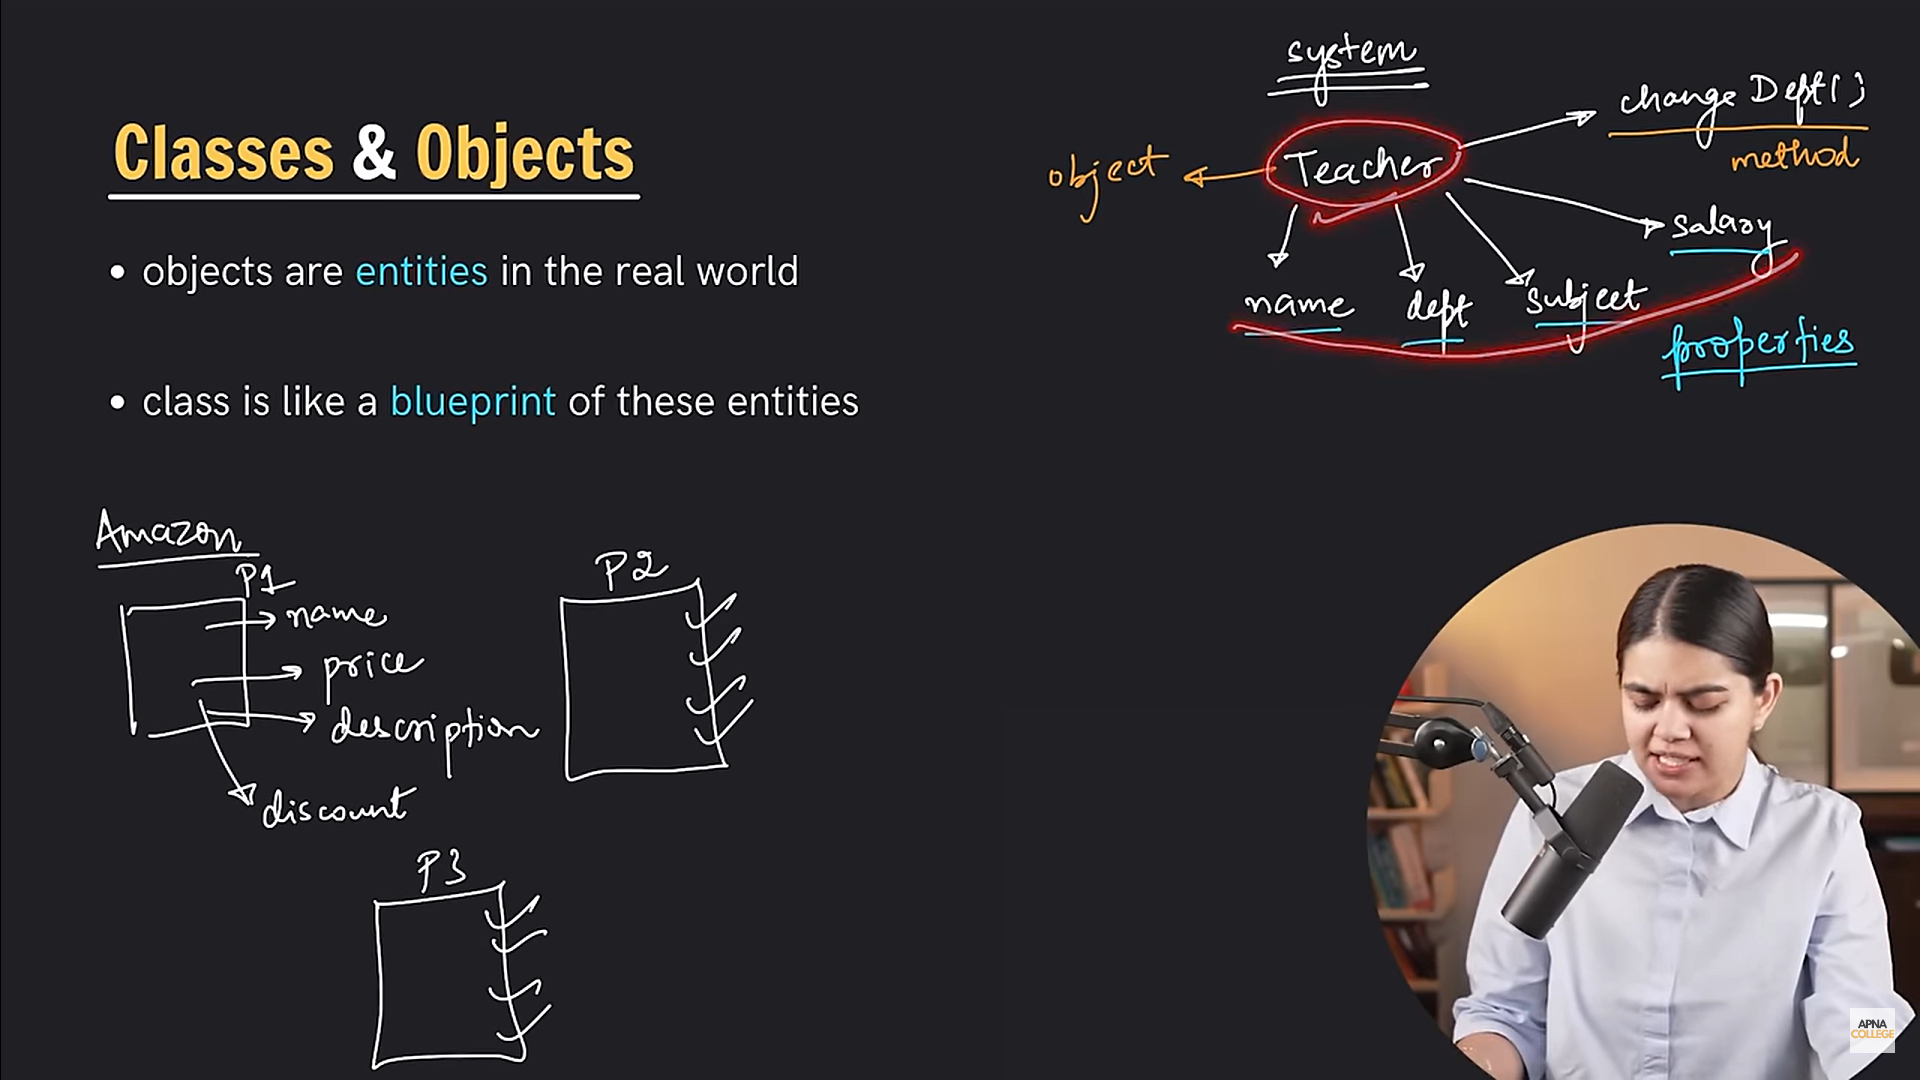 Classes & Objects
• objects are entities in the real world
• class is like a blueprint of these entities
system
Teacher
object
change Dept()
method
salary
name
dept
subject
properties
Amazon
P1
name
price
description
discount
P2
P3
APNA
COLLEGE